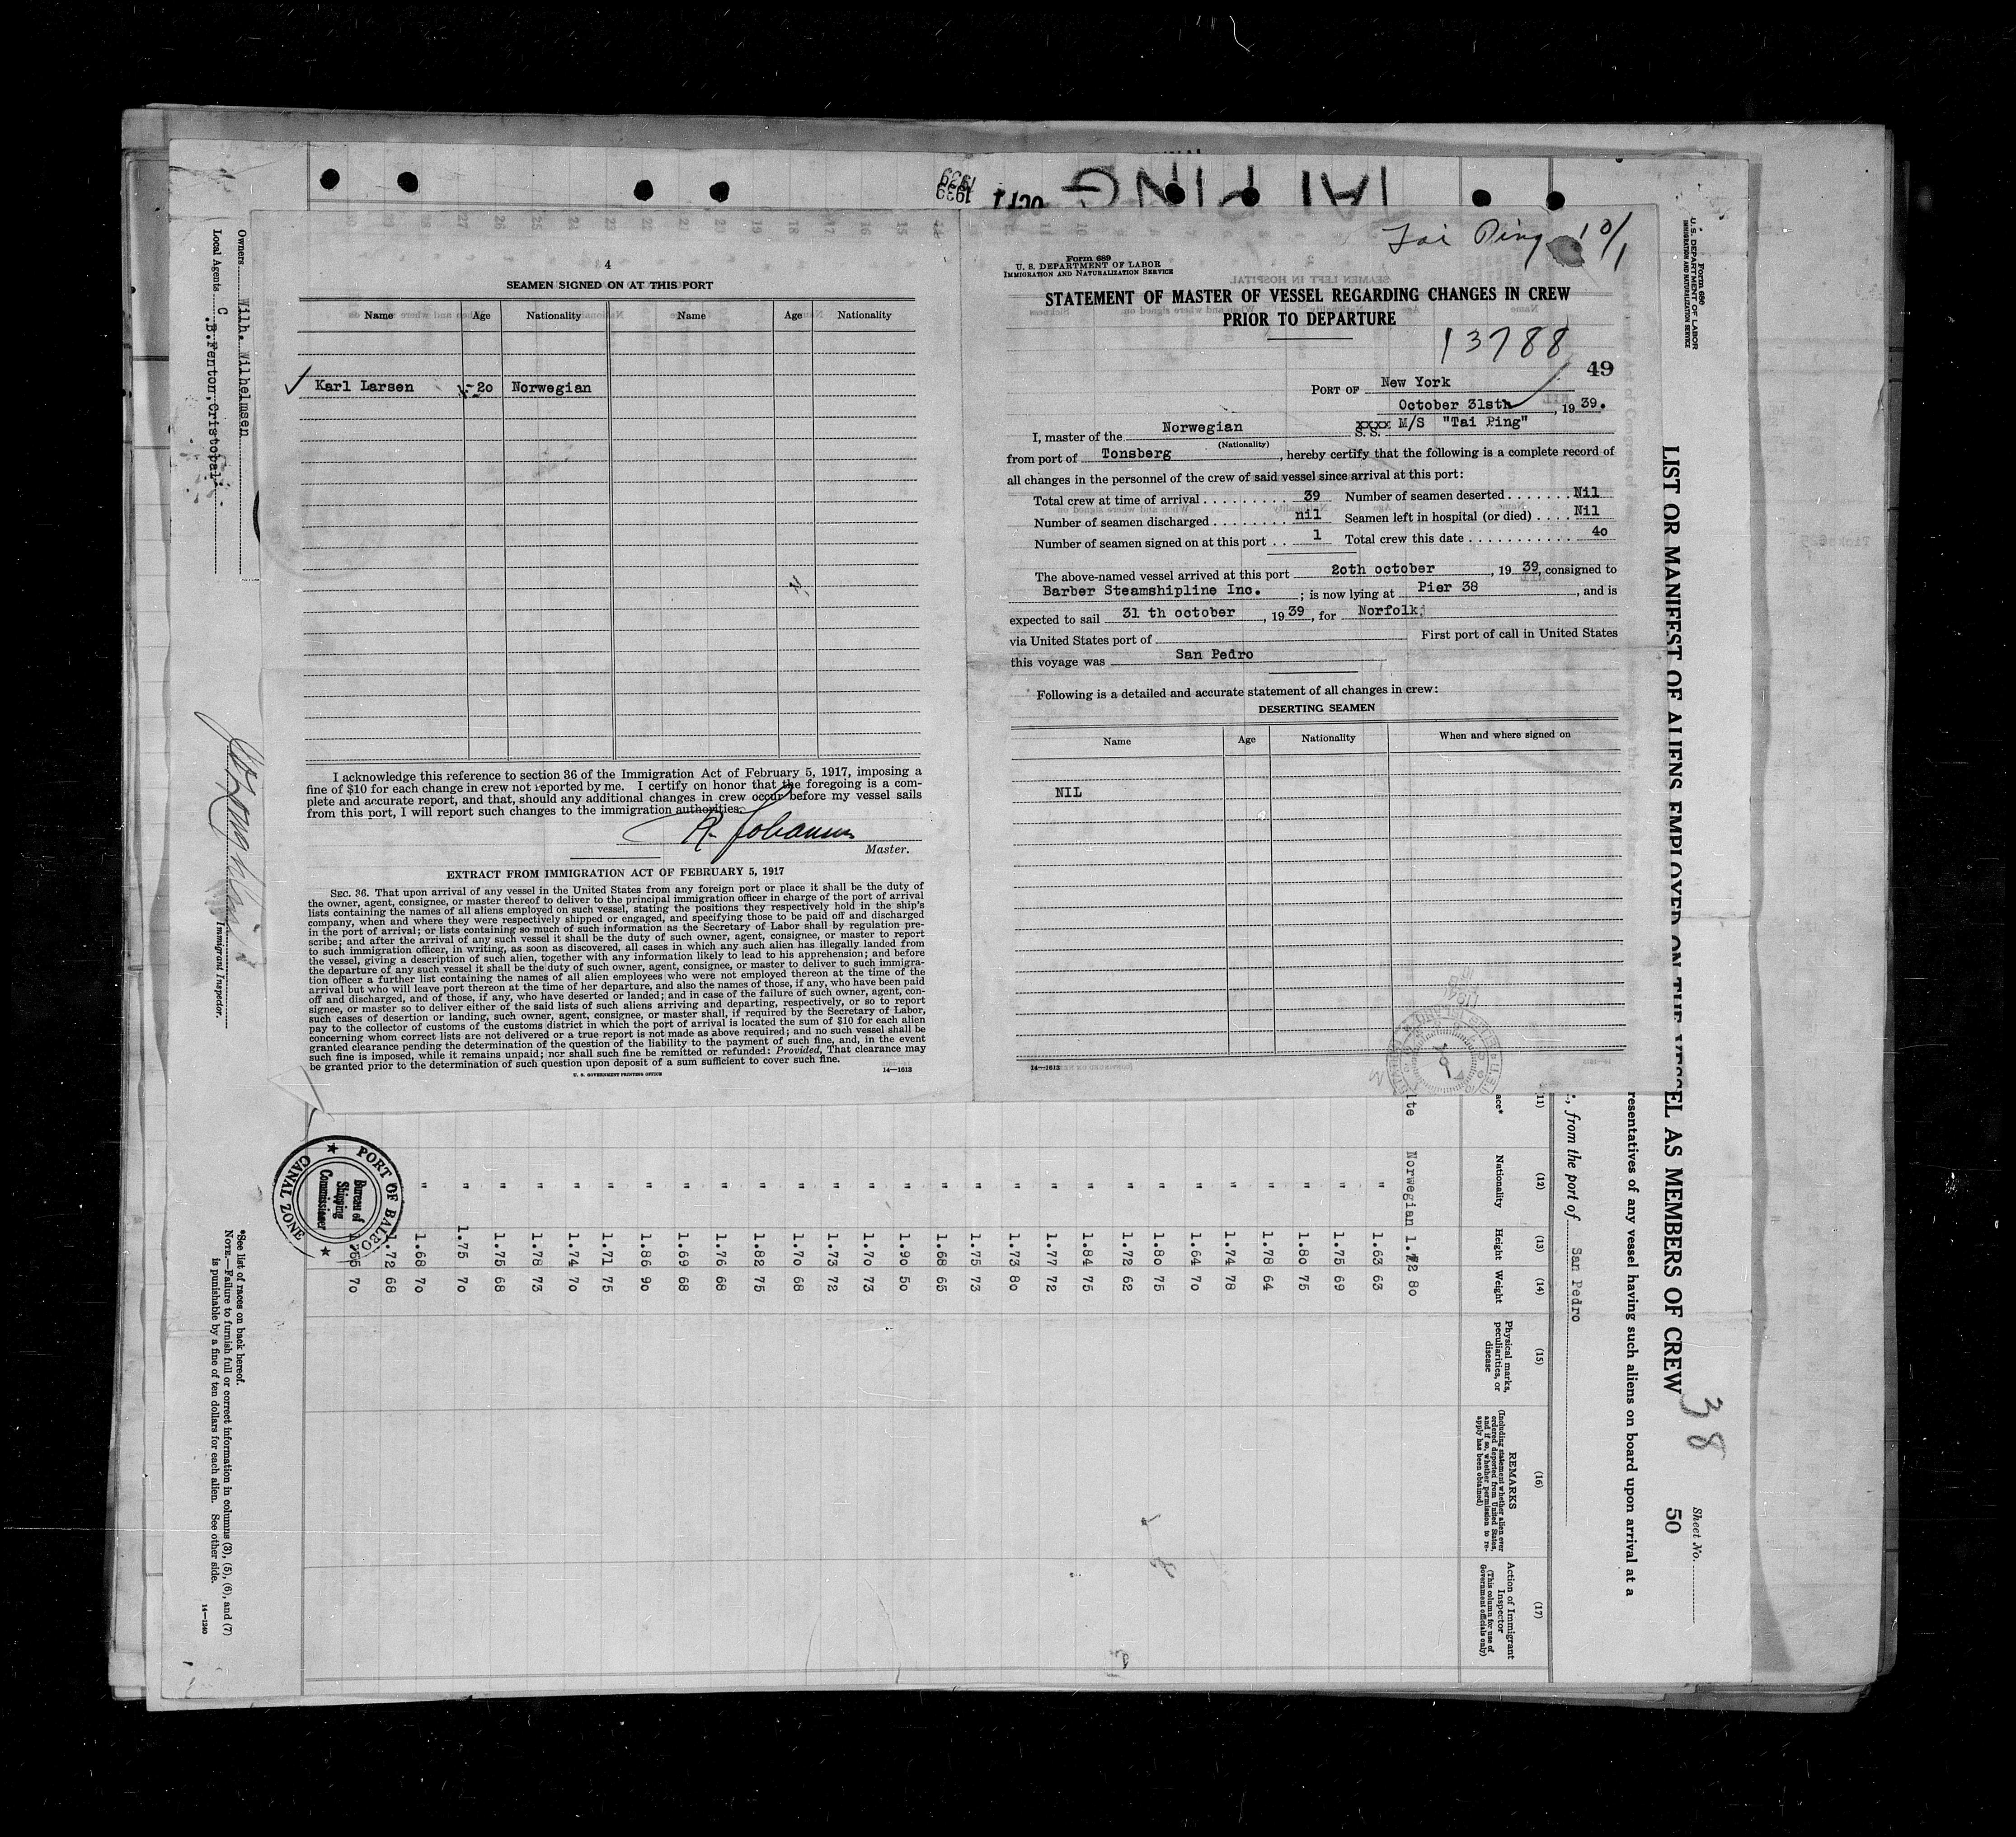 TAI PING
OCT 1
1939
1939
Tai Ping 10/1
4
SEAMEN SIGNED ON AT THIS PORT
Name Age Nationality Name Age Nationality
Karl Larsen 20 Norwegian
I acknowledge this reference to section 36 of the Immigration Act of February 5, 1917, imposing a
fine of $10 for each change in crew not reported by me. I certify on honor that the foregoing is a com-
plete and accurate report, and that, should any additional changes in crew occur before my vessel sails
from this port, I will report such changes to the immigration authorities.
Master.
EXTRACT FROM IMMIGRATION ACT OF FEBRUARY 5, 1917
SEC. 36. That upon arrival of any vessel in the United States from any foreign port or place it shall be the duty of
the owner, agent, consignee, or master thereof to deliver to the principal immigration officer in charge of the port of arrival
lists containing the names of all aliens employed on such vessel, stating the positions they respectively hold in the ship's
company, when and where they were respectively shipped or engaged, and specifying those to be paid off and discharged
in the port of arrival; or lists containing so much of such information as the Secretary of Labor shall by regulation pre-
scribe; and after the arrival of any such vessel it shall be the duty of such owner, agent, consignee, or master to report
to such immigration officer, in writing, as soon as discovered, all cases in which any such alien has illegally landed from
the vessel, giving a description of such alien, together with any information likely to lead to his apprehension; and before
the departure of any such vessel it shall be the duty of such owner, agent, consignee, or master to deliver to such immigra-
tion officer a further list containing the names of all alien employees who were not employed thereon at the time of the
arrival but who will leave port thereon at the time of her departure, and also the names of those, if any, who have been paid
off and discharged, and of those, if any, who have deserted or landed; and in case of the failure of such owner, agent, con-
signee, or master so to deliver either of the said lists of such aliens arriving and departing, respectively, or so to report
such cases of desertion or landing, such owner, agent, consignee, or master shall, if required by the Secretary of Labor,
pay to the collector of customs of the customs district in which the port of arrival is located the sum of $10 for each alien
concerning whom correct lists are not delivered or a true report is not made as above required; and no such vessel shall be
granted clearance pending the determination of the question of the liability to the payment of such fine, and, in the event
such fine is imposed, while it remains unpaid; nor shall such fine be remitted or refunded: Provided, That clearance may
be granted prior to the determination of such question upon deposit of a sum sufficient to cover such fine.
U. S. GOVERNMENT PRINTING OFFICE 14—1613
Form 689
U. S. DEPARTMENT OF LABOR
IMMIGRATION AND NATURALIZATION SERVICE
STATEMENT OF MASTER OF VESSEL REGARDING CHANGES IN CREW
PRIOR TO DEPARTURE
13788
49
PORT OF New York
October 31sth, 1939.
I, master of the Norwegian xxxx S.S. M/S "Tai Ping"
(Nationality)
from port of Tonsberg, hereby certify that the following is a complete record of
all changes in the personnel of the crew of said vessel since arrival at this port:
Total crew at time of arrival 39 Number of seamen deserted Nil
Number of seamen discharged nil Seamen left in hospital (or died) Nil
Number of seamen signed on at this port 1 Total crew this date 4o
The above-named vessel arrived at this port 2oth october, 1939, consigned to
Barber Steamshipline Inc.; is now lying at Pier 38, and is
expected to sail 31 th october, 1939, for Norfolk
via United States port of First port of call in United States
this voyage was San Pedro
Following is a detailed and accurate statement of all changes in crew:
DESERTING SEAMEN
Name Age Nationality When and where signed on
NIL
14—1613
Form 686
U. S. DEPARTMENT OF LABOR
IMMIGRATION AND NATURALIZATION SERVICE
LIST OR MANIFEST OF ALIENS EMPLOYED ON THE VESSEL AS MEMBERS OF CREW
38
50
Sheet No.
resentatives of any vessel having such aliens on board upon arrival at a
, from the port of San Pedro
(11) (12) (13) (14) (15) (16) (17)
ace* Nationality Height Weight Physical marks, peculiarities, or disease REMARKS (Including statement whether alien ever ordered deported from United States, and if so, whether permission to re-apply has been obtained) Action of Immigrant Inspector (This column for use of Government officials only)
lte Norwegian 1.72 80
" 1.63 63
" 1.75 69
" 1.80 75
" 1.78 64
" 1.74 78
" 1.64 70
" 1.80 75
" 1.72 62
" 1.84 75
" 1.77 72
" 1.73 80
" 1.75 73
" 1.68 65
" 1.90 50
" 1.70 73
" 1.73 72
" 1.70 68
" 1.82 75
" 1.76 68
" 1.69 68
" 1.86 90
" 1.71 75
" 1.74 70
" 1.78 73
" 1.75 68
" 1.75 70
" 1.68 70
1.72 68
70
PORT OF BALBOA
CANAL ZONE
Bureau of
Shipping
Commissioner
Owners Wilh. Wilhelmsen
Local Agents C.B.Fenton, Cristobal
Immigrant Inspector.
*See list of races on back hereof.
NOTE.—Failure to furnish full or correct information in columns (3), (5), (6), and (7)
is punishable by a fine of ten dollars for each alien. See other side.
14—1240